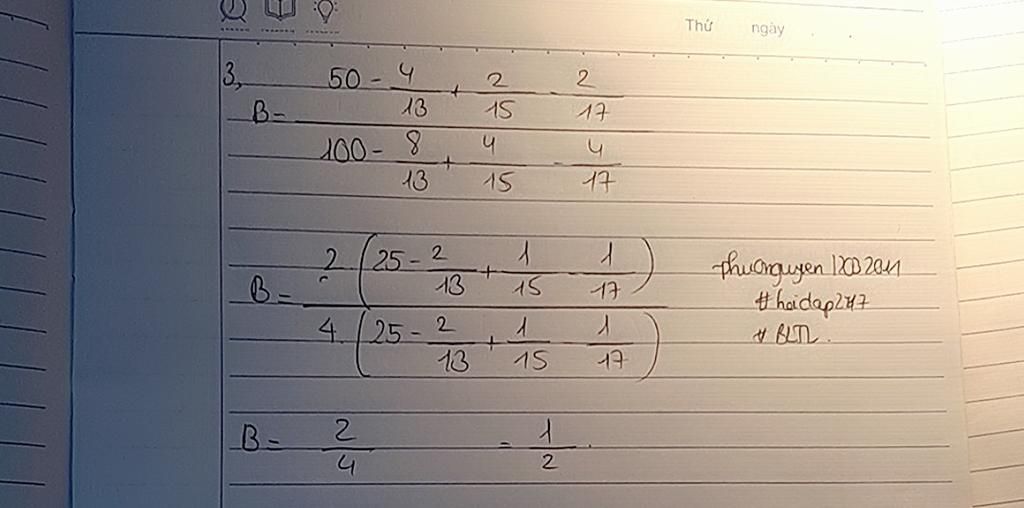 Thứ ngày
3, B = (50 - 4/13 + 2/15 - 2/17) / (100 - 8/13 + 4/15 - 4/17)
B = 2 (25 - 2/13 + 1/15 - 1/17) / 4. (25 - 2/13 + 1/15 - 1/17)
#hoidap247
# BLTL.
B = 2/4 = 1/2.